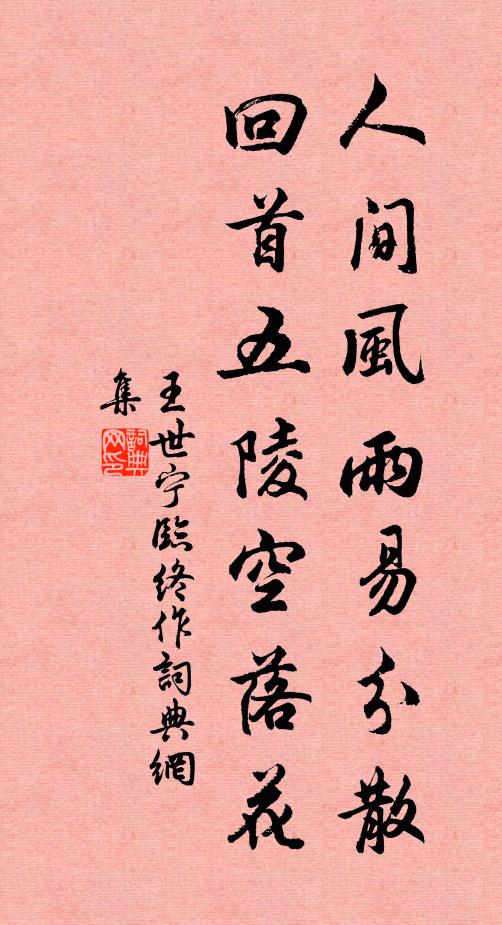 人間風雨易分散
回首五陵空落花
王世宁臨终作詞典網
集
詞典
网印